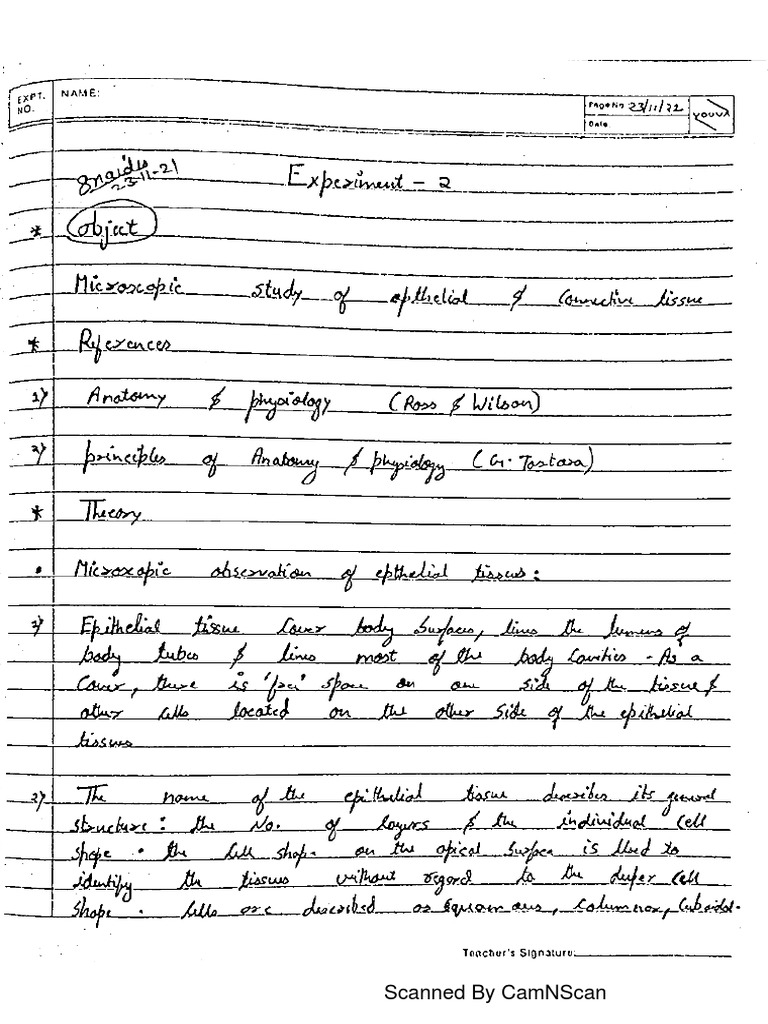 EXPT. NO.
NAME:
Page No 23/11/22
Date
YOUVA
23-11-21
Experiment - 2
* Object
Microscopic study of epthelial & Connective tissue
* References
1) Anatomy & physiology (Ross & Wilson)
2) principles of Anatomy & physiology (G. Tortora)
* Theory
• Microscopic observation of epthelial tissues:
1) Epithelial tissue Cover body Surfaces, lines the lumens of
body tubes & lines most of the body Cavities. As a
Cover, there is 'free' space on one side of the tissue &
other Cells located on the other side of the epithelial
tissues
2) The name of the epithelial tissue describes its general
structure: the No. of layers & the individual Cell
shape. the Cell shape on the apical Surface is Used to
identify the tissues without regard to the deeper Cell
shape. Cells are described as Squamous, Columnar, Cuboidal.
Teacher's Signature:
Scanned By CamNScan